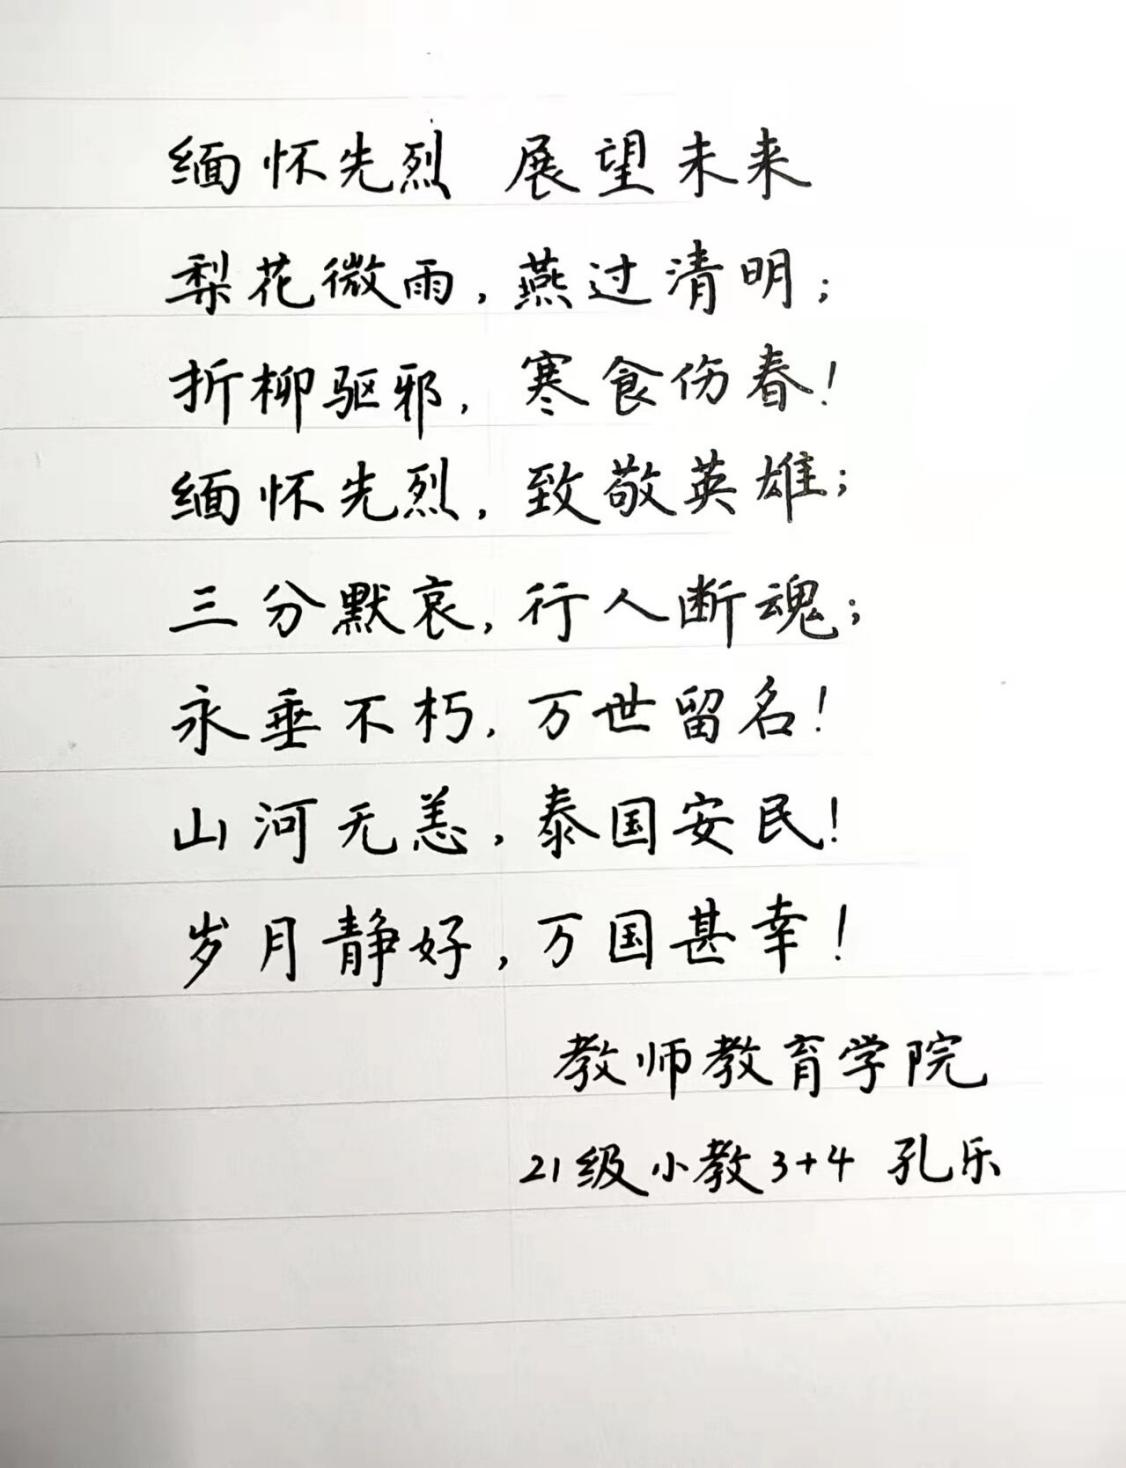 缅怀先烈 展望未来
梨花微雨，燕过清明；
折柳驱邪，寒食伤春！
缅怀先烈，致敬英雄；
三分默哀，行人断魂；
永垂不朽，万世留名！
山河无恙，泰国安民！
岁月静好，万国甚幸！
教师教育学院
21级小教3+4 孔乐